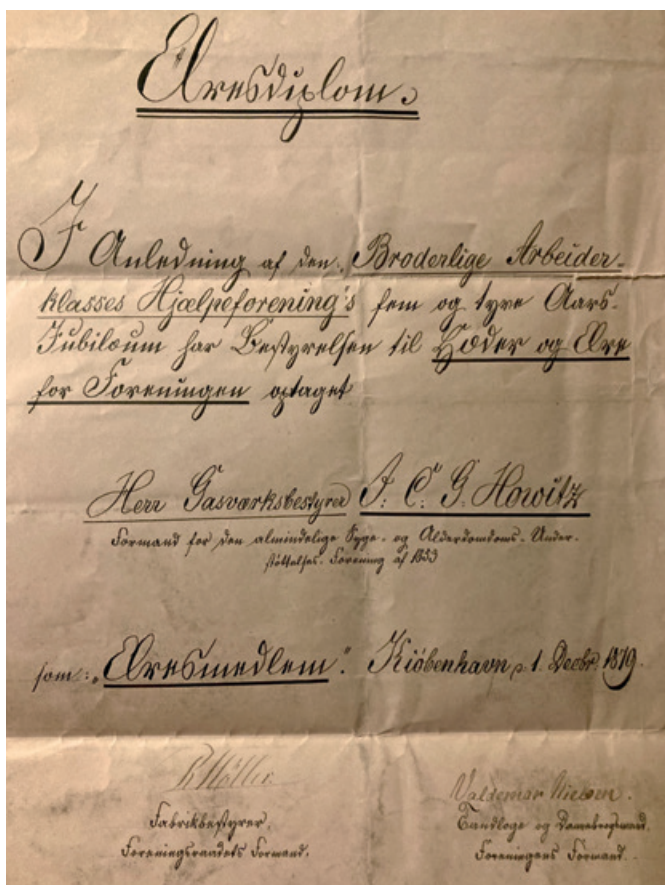 Æresdiplom.
I Anledning af den Broderlige Arbeider-
klasses Hjælpeforening's fem og tyve Aars-
Jubilæum har Bestyrelsen til Hæder og Ære
for Foreningen optaget
Herr Gasværksbestyrer J. C. G. Howitz
Formand for den almindelige Syge- og Alderdomdoms-Under-
støttelses-Forening af 1853
som: „Æresmedlem". Kiöbenhavn, d. 1. Decbr. 1879.
Valdemar Nielsen.
Fabrikbestyrer. Tandlæge og Dannebrogsmand.
Foreningsraadets Formand. Foreningens Formand.